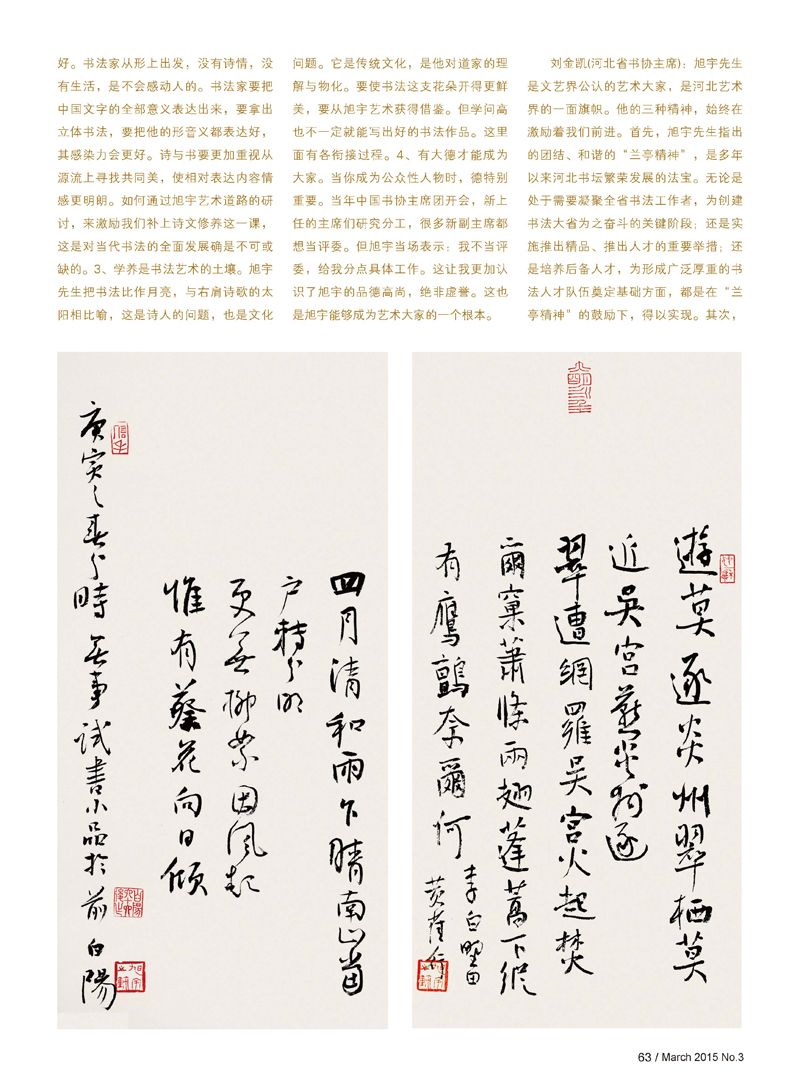 好。书法家从形上出发，没有诗情，没
有生活，是不会感动人的。书法家要把
中国文字的全部意义表达出来，要拿出
立体书法，要把他的形音义都表达好，
其感染力会更好。诗与书要更加重视从
源流上寻找共同美，使相对表达内容情
感更明朗。如何通过旭宇艺术道路的研
讨，来激励我们补上诗文修养这一课，
这是对当代书法的全面发展确是不可或
缺的。3、学养是书法艺术的土壤。旭宇
先生把书法比作月亮，与右肩诗歌的太
阳相比喻，这是诗人的问题，也是文化
问题。它是传统文化，是他对道家的理
解与物化。要使书法这支花朵开得更鲜
美，要从旭宇艺术获得借鉴。但学问高
也不一定就能写出好的书法作品。这里
面有各衔接过程。4、有大德才能成为
大家。当你成为公众性人物时，德特别
重要。当年中国书协主席团开会，新上
任的主席们研究分工，很多新副主席都
想当评委。但旭宇当场表示：我不当评
委，给我分点具体工作。这让我更加认
识了旭宇的品德高尚，绝非虚誉。这也
是旭宇能够成为艺术大家的一个根本。
刘金凯(河北省书协主席)：旭宇先生
是文艺界公认的艺术大家，是河北艺术
界的一面旗帜。他的三种精神，始终在
激励着我们前进。首先，旭宇先生指出
的团结、和谐的“兰亭精神”，是多年
以来河北书坛繁荣发展的法宝。无论是
处于需要凝聚全省书法工作者，为创建
书法大省为之奋斗的关键阶段；还是实
施推出精品、推出人才的重要举措；还
是培养后备人才，为形成广泛厚重的书
法人才队伍奠定基础方面，都是在“兰
亭精神”的鼓励下，得以实现。其次，
四月清和雨乍晴南山当
户转分明
更无柳絮因风起
惟有葵花向日倾
庚寅之春分时无事试书小品于前白阳
遊莫逐炎州翠栖莫
近吴宫燕炎州逐
翠遭網羅吴宫火起焚
爾窠蕭條兩翅蓬蒿下縱
有鷹鸇奈爾何
李白野田
黄雀行
63 / March 2015 No.3